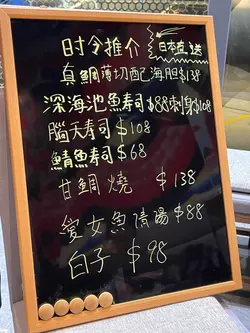 時令推介 日本直送
真鯛薄切配海胆$138
深海池魚寿司$88刺身$108
腦天寿司$108
鯖魚寿司$68
甘鯛燒 $138
愛女魚清湯$88
白子 $98